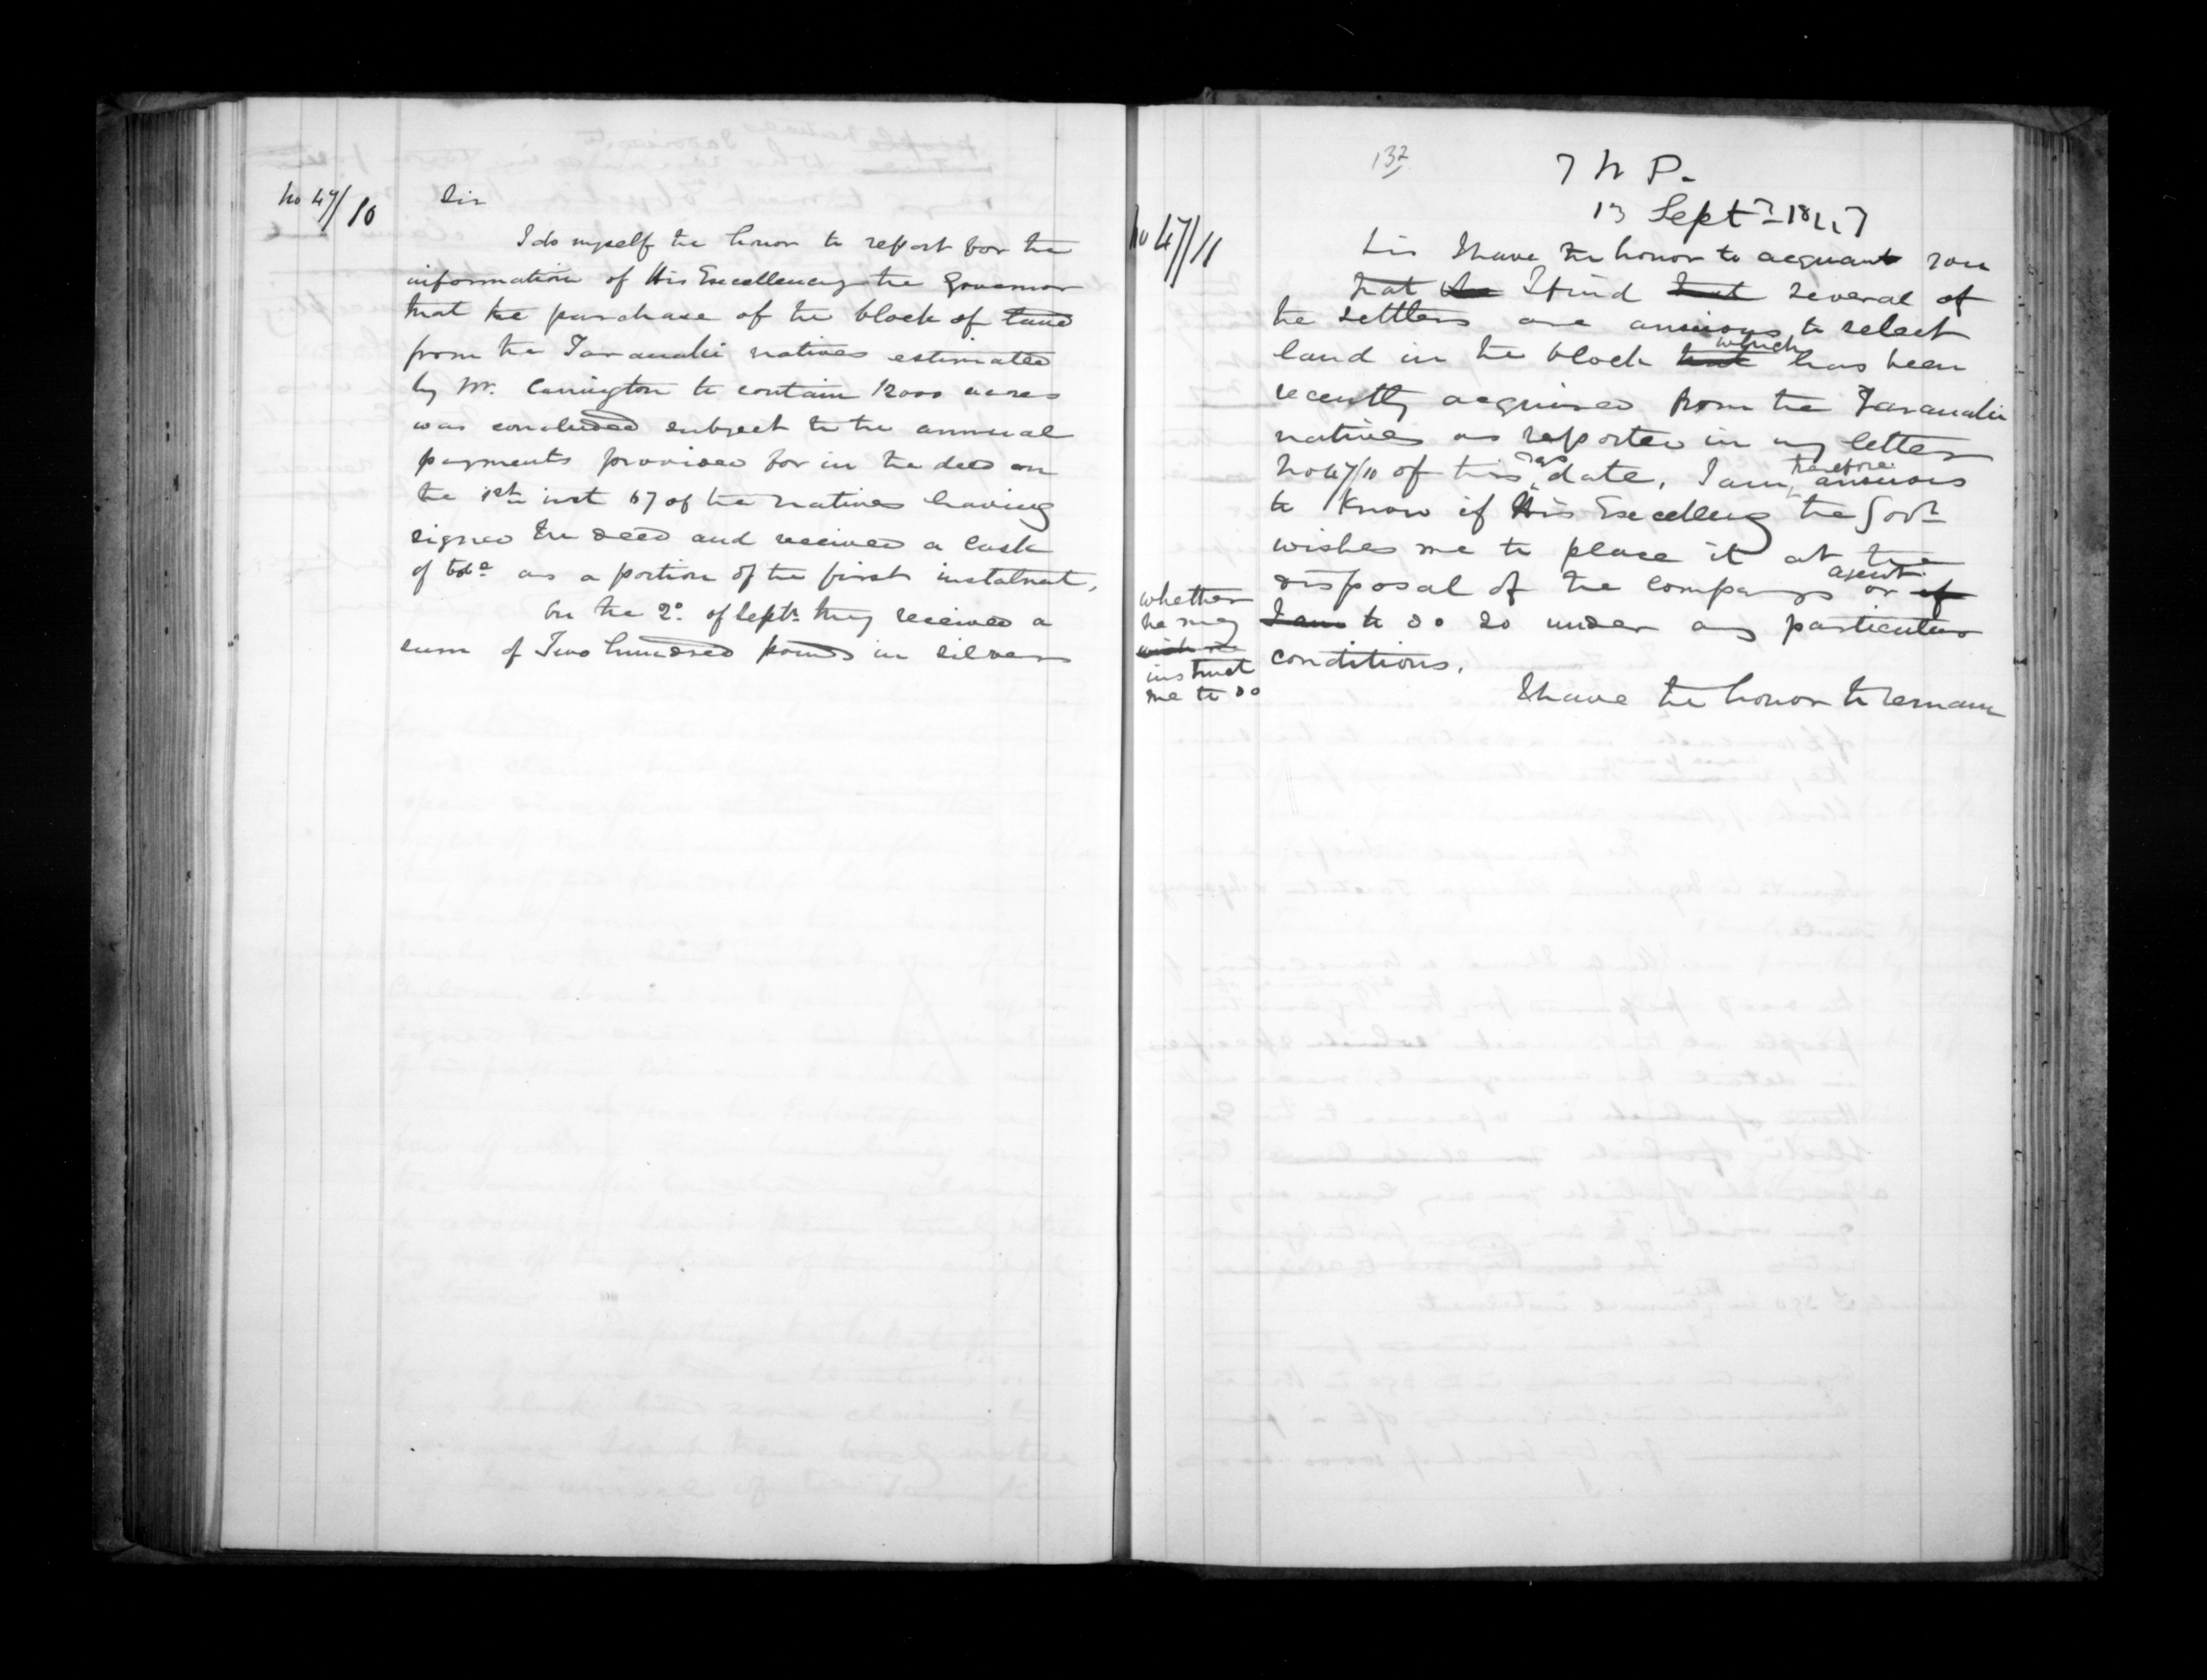 No 47/10
Sir
I do myself the honor to report for the
information of His Excellency the Governor
that the purchase of the block of land
from the Taranaki natives estimated
by Mr. Carrington to contain 12000 acres
was concluded subject to the annual
payments provided for in the deed on
the inst 67 of the natives having
signed the deed and received a cask
of tobo as a portion of the first instalment,
On the 2o of Septr they received a
sum of Two hundred pounds in silver
132
T N P.
13 Septr 1847
No 47/11
Sir I have the honor to acquaint you
that the I find that several of
the settlers are anxious to select
which
land in the block that has been
recently acquired from the Taranaki
natives as reported in my letter
day therefore
No 47/10 of this date, I am anxious
to know if His Excellency the Govr
wishes me to place it at the
agent
disposal of the Companys or if
I am to do so under any particular
conditions.
whether
he may
wish me
instruct
me to do
I have the honor to remain